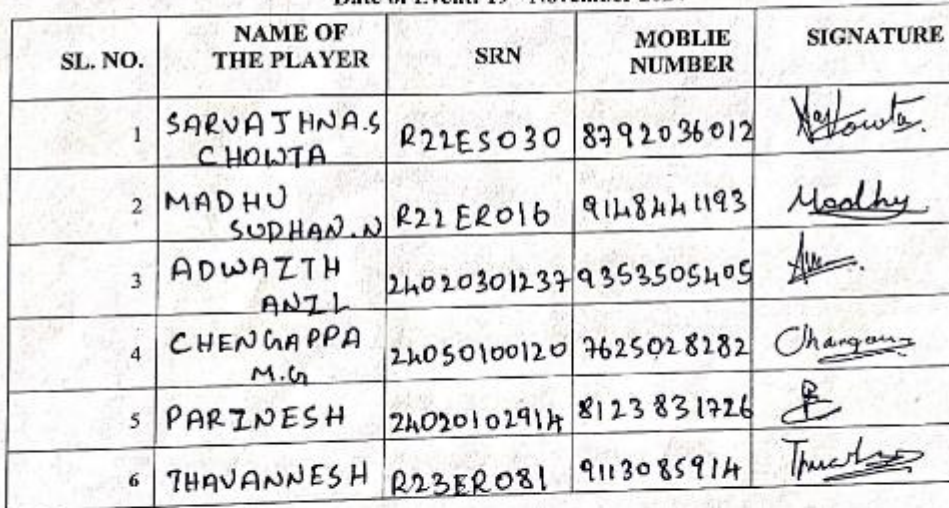 SL. NO. NAME OF THE PLAYER SRN MOBLIE NUMBER SIGNATURE
1 SARVAJHNA.S CHOWTA R22ES030 8792036012
2 MADHU SUDHAN.N R22ER016 9148441193 Madhu
3 ADWAITH ANIL 24020301237 9353505405
4 CHENGAPPA M.G 24050100120 7625028282
5 PARINESH 24020102914 8123831726
6 THAVANNESH R23ER081 9113085914